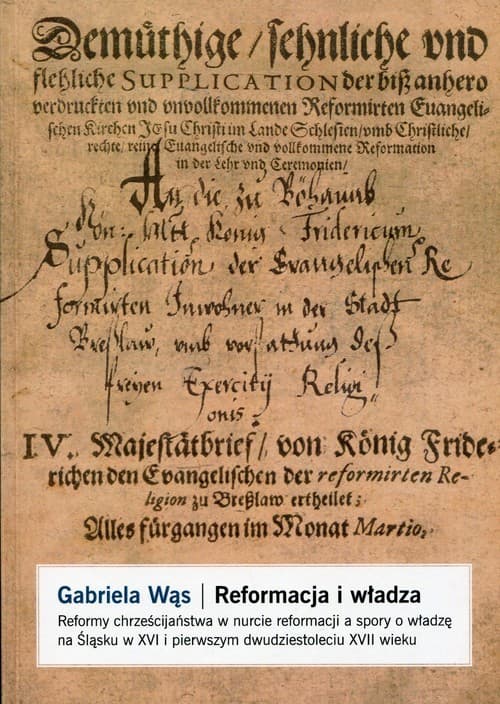 Demüthige / sehnliche vnd
flehliche SUPPLICATION der biß anhero
verdruckten vnd vnvollkommenen Reformirten Euangeli-
schen Kirchen JEsu Christi im Lande Schlesien / vmb Christliche /
rechte / reine Euangelische vnd vollkommene Reformation
in der Lehr vnd Ceremonien /
An die zu Böhaimb
Kön: Mtt König Fridericum
Supplication der Evangelischen Re
formirten Inwohner in der Stadt
Breßlaw, vmb verstattung deß
freyen Exercitij Religi
onis.
IV. Majestätbrief / von König Fride-
richen den Evangelischen der reformirten Re-
ligion zu Breßlaw ertheilet;
Alles fürgangen im Monat Martio.
Gabriela Wąs | Reformacja i władza
Reformy chrześcijaństwa w nurcie reformacji a spory o władzę
na Śląsku w XVI i pierwszym dwudziestoleciu XVII wieku